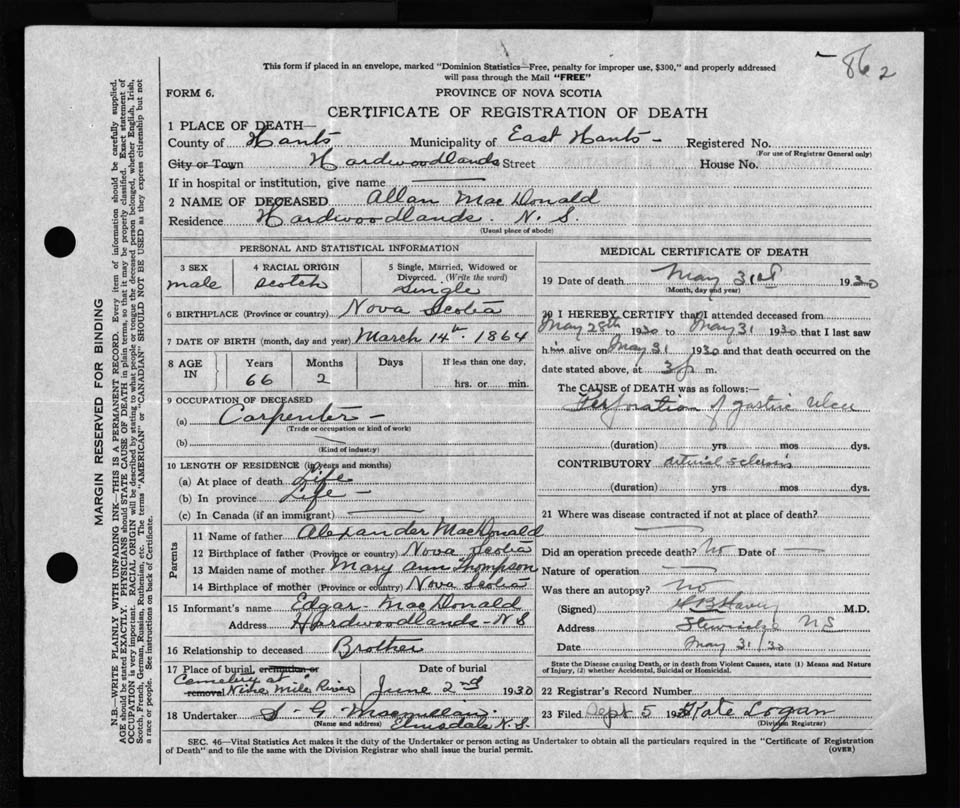 862
This form if placed in an envelope, marked "Dominion Statistics—Free, penalty for improper use, $300," and properly addressed
will pass through the Mail "FREE"
FORM 6.
PROVINCE OF NOVA SCOTIA
CERTIFICATE OF REGISTRATION OF DEATH
1 PLACE OF DEATH—
County of Hants Municipality of East Hants - Registered No.
(For use of Registrar General only)
City or Town Hardwoodlands Street House No.
If in hospital or institution, give name
2 NAME OF DECEASED Allan MacDonald
Residence Hardwoodlands. N. S.
(Usual place of abode)
PERSONAL AND STATISTICAL INFORMATION
3 SEX
male
4 RACIAL ORIGIN
Scotch
5 Single, Married, Widowed or
Divorced. (Write the word)
Single
6 BIRTHPLACE (Province or country) Nova Scotia
7 DATE OF BIRTH (month, day and year) March 14th. 1864
8 AGE
IN
Years
66
Months
2
Days
If less than one day,
hrs. or min.
9 OCCUPATION OF DECEASED
(a) Carpenter -
(Trade or occupation or kind of work)
(b)
(Kind of industry)
10 LENGTH OF RESIDENCE (in years and months)
(a) At place of death Life
(b) In province Life -
(c) In Canada (if an immigrant)
Parents
11 Name of father Alexander MacDonald
12 Birthplace of father (Province or country) Nova Scotia
13 Maiden name of mother Mary Ann Thompson
14 Birthplace of mother (Province or country) Nova Scotia
15 Informant's name Edgar MacDonald
Address Hardwoodlands - N S
16 Relationship to deceased Brother
17 Place of burial, cremation or
Cemetery at
removal Nine Mile River
Date of burial
June 2nd 1930
18 Undertaker S - G - Macmillan.
(Name and address) Elmsdale N. S.
MEDICAL CERTIFICATE OF DEATH
19 Date of death May 31st 1930
(Month, day and year)
20 I HEREBY CERTIFY that I attended deceased from
May 28th 1930 to May 31 1930 that I last saw
him alive on May 31 1930 and that death occurred on the
date stated above, at 3 p m.
The CAUSE of DEATH was as follows:—
Perforation of gastric ulcer
(duration) yrs mos dys.
CONTRIBUTORY arterial sclerosis
(duration) yrs mos dys.
21 Where was disease contracted if not at place of death?
Did an operation precede death? No Date of
Nature of operation
Was there an autopsy? No
(Signed) M.D.
Address N S
Date May 31/30
State the Disease causing Death, or in death from Violent Causes, state (1) Means and Nature
of Injury, (2) whether Accidental, Suicidal or Homicidal.
22 Registrar's Record Number
23 Filed Sept 5 1930 Kate Logan
(Division Registrar)
SEC. 46—Vital Statistics Act makes it the duty of the Undertaker or person acting as Undertaker to obtain all the particulars required in the "Certificate of Registration
of Death" and to file the same with the Division Registrar who shall issue the burial permit.
(OVER)
MARGIN RESERVED FOR BINDING
N.B.—WRITE PLAINLY WITH UNFADING INK—THIS IS A PERMANENT RECORD. Every item of information should be carefully supplied.
AGE should be stated EXACTLY. PHYSICIANS should STATE CAUSE OF DEATH in plain terms, so that it may be properly classified. Exact statement of
OCCUPATION is very important. RACIAL ORIGIN will be described by stating to what people or tongue the deceased person belonged, whether English, Irish,
Scotch, French, German, Russian, Ruthenian, etc. The terms "AMERICAN" or "CANADIAN" SHOULD NOT BE USED as they express citizenship but not
a race or people. See instructions on back of Certificate.